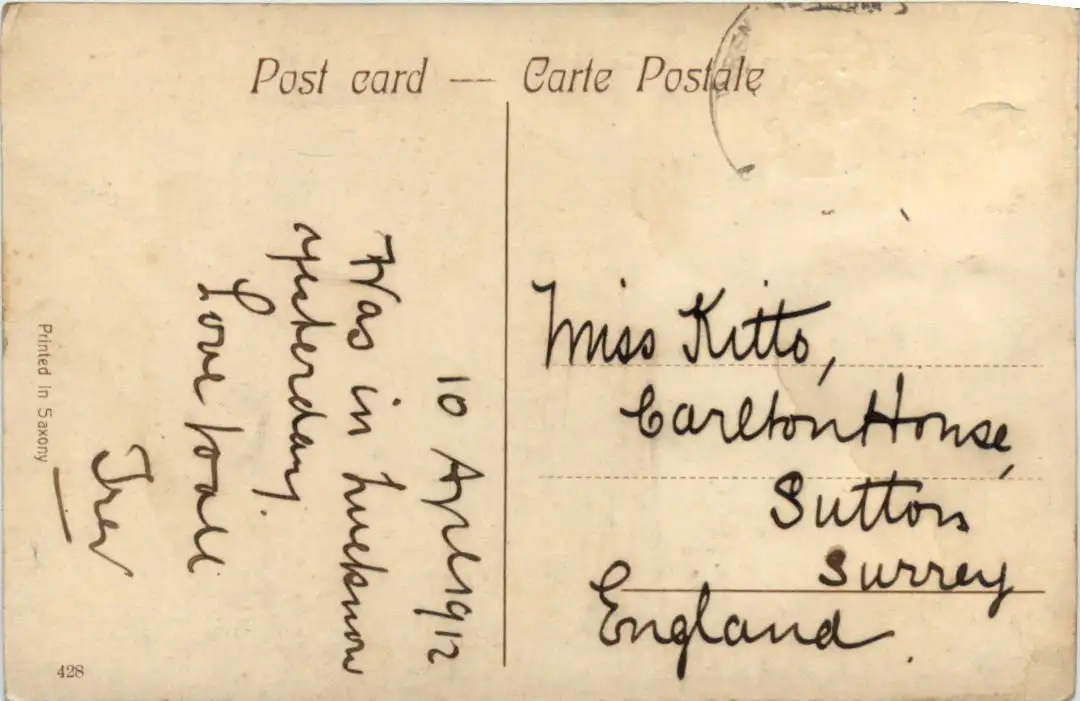 Post card — Carte Postale
10 April 1912
Was in Lucknow
yesterday.
Love to all
Trev
Miss Kitto,
Carlton House,
Sutton
Surrey
England.
Printed in Saxony
428